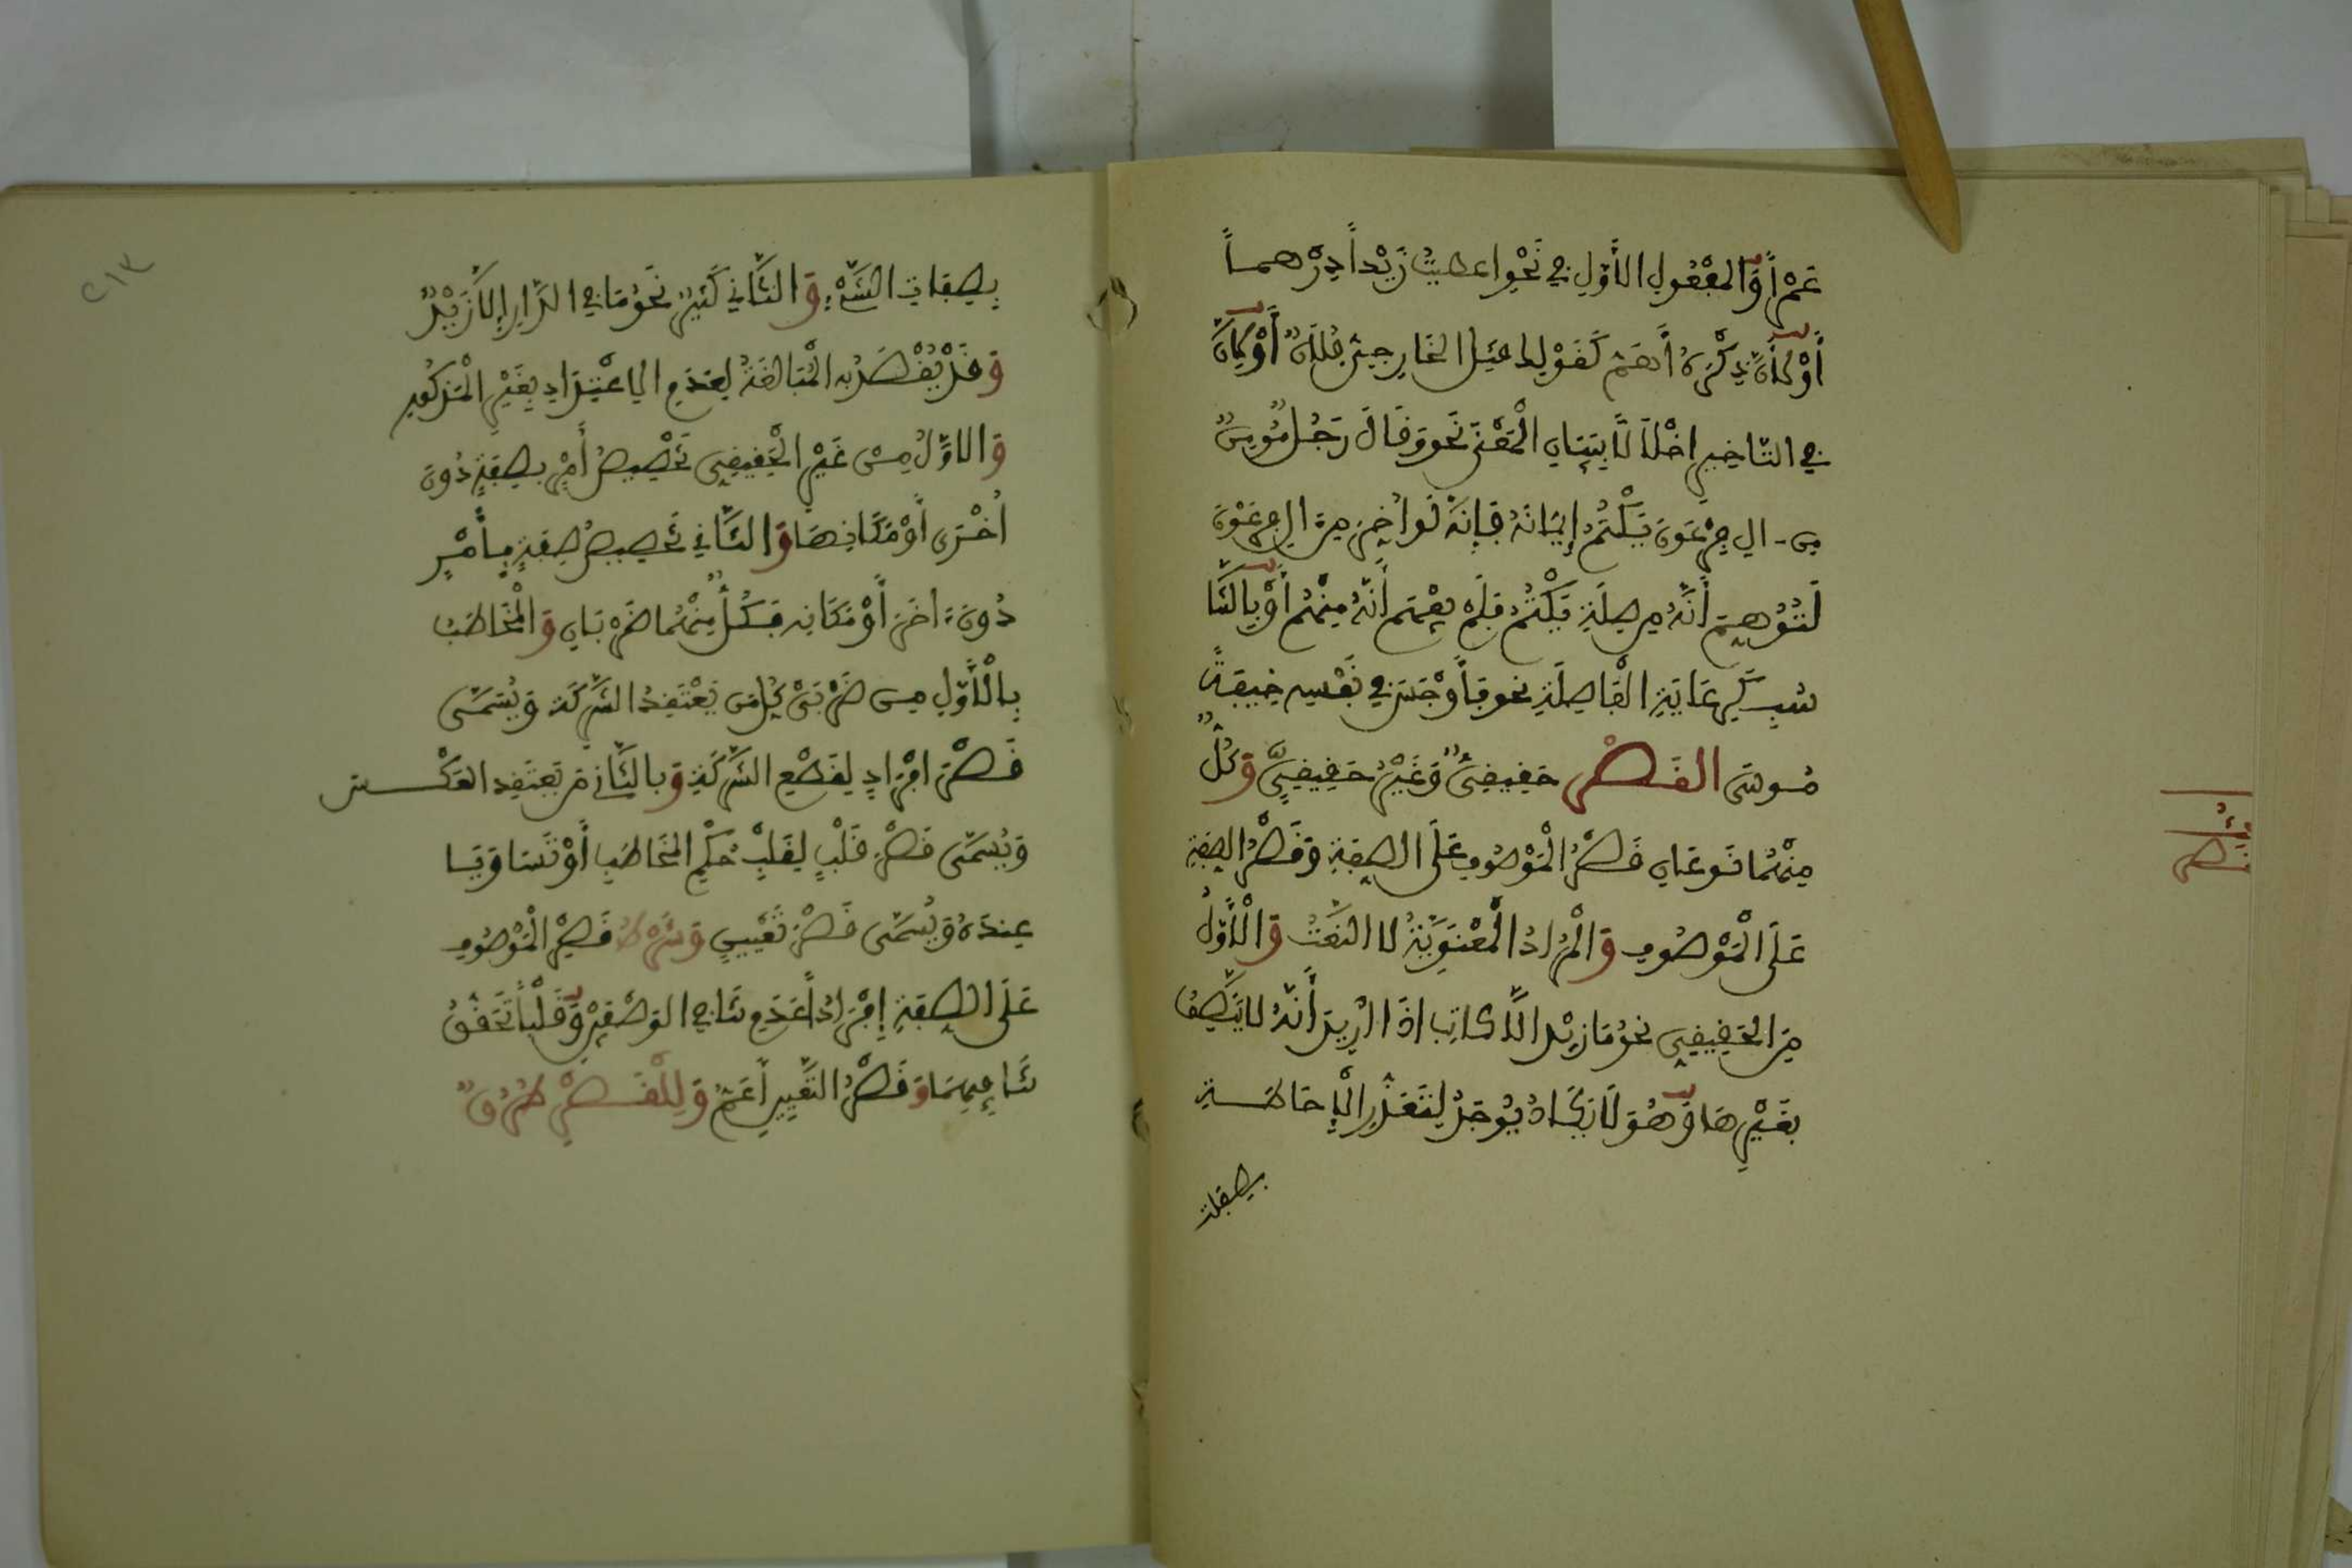 عَمْراً وَالمفْعُولِ الأَوّلِ في نَحْوِ اعطيتُ زَيْداً دِرْهماً
أَوْ لأَنَّ ذِكْرَهُ أَهَمُّ كَقَوْلِكَ قَتَلَ الخَارِجِيَّ فُلاَنٌ أَوْ لأَنَّ
في التاخيرِ اخْلاَلاً بِبَيَانِ الْمَعْنَى نحو وَقَالَ رَجُلٌ مُّومِنٌ
من ءالِ فِرْعَوْنَ يَكْتُمُ إِيمَانَهُ فَإِنَّهُ لَوْ أُخِّرَ مِنَ الِ فِرْعَوْنَ
لَتُوُهِّمَ أَنَّهُ مِن صِلَةِ يَكْتُمُ فَلَمْ يفْهَم أَنَّهُ مِنْهُم أَوْ بِالتَّنَا
سُبِ كَرِعَايَةِ الْفَاصِلَةِ نحو فَأَوْجَسَ في نَفْسِهِ خِيفَةً
مُوسَى القَصْرُ حَقِيقِيٌّ وَغَيْرُ حَقِيقِيٍّ وَكُلٌّ
مِنْهُمَا نَوعَانِ قَصْرُ الْمَوْصُوفِ عَلَى الصِّفَةِ وَقَصْرُ الصِّفَةِ
عَلَى الْمَوْصُوفِ وَالْمُرَادُ الْمَعْنَوِيَّةُ لا النَّعْتُ وَالْأَوَّلُ
مِنَ الحَقِيقِيِّ نحوُ مَا زيْد الاَّ كاتِب اذَا ارِيدَ أَنَّهُ لا يَتَّصِفُ
بغَيْرِهَا وَهُوَ لاَ يَكَادُ يُوجَدُ لِتَعَذُّرِ الْإِحَاطَةِ
بصفات
القصر
٢١٣
بِصِفَاتِ الشَّيْءِ وَالثَّانِي كَثِيرٌ نَحْوُ مَا في الدَّارِ إِلاَّ زَيْدٌ
وَقَدْ يُقْصَدُ بِهِ الْمُبَالَغَةُ لِعَدَمِ الِاعْتِدَادِ بِغَيْرِ الْمَذْكُورِ
وَالاوَّلُ مِنْ غَيْرِ الْحَقِيقِيِّ تَخْصِيصُ أَمْرٍ بِصِفَةٍ دُونَ
أُخْرَى أَوْ مَكَانَهَا وَالثَّانِي تَخصِيصُ صِفَةٍ بِأَمْرٍ
دُونَ ءاخَرَ أَوْ مَكَانَه فَكُلٌّ مِنْهُمَا ضَرْبَانِ وَالْمُخَاطَبُ
بِالْأَوَّلِ مِن ضَرْبَيْ كُلٍّ مَن يَعْتَقِدُ الشَّرِكَةَ وَيُسَمَّى
قَصْرَ افْرَادٍ لِقَطْعِ الشَّرِكَةِ وَبالثَّانِي مَن يَعتَقِد العَكْسَ
وَيُسَمَّى قَصْرَ قَلْبٍ لِقَلْبِ حُكْمِ المُخَاطَبِ أَوْ تَسَاوَيَا
عِندَهُ وَيُسَمَّى قَصْرَ تَعْيِينٍ وَشَرْطُ قَصْرِ الْمَوْصُوفِ
عَلَى الصِّفَةِ إِفْرَاداً عَدَمُ تَنَافِي الوَصْفَيْنِ وَقَلْباً تَحَقُّقُ
تَنَافِيهِمَا وَقَصْرُ التَّعْيِينِ أَعَمُّ وَلِلْقَصْرِ طُرُقٌ